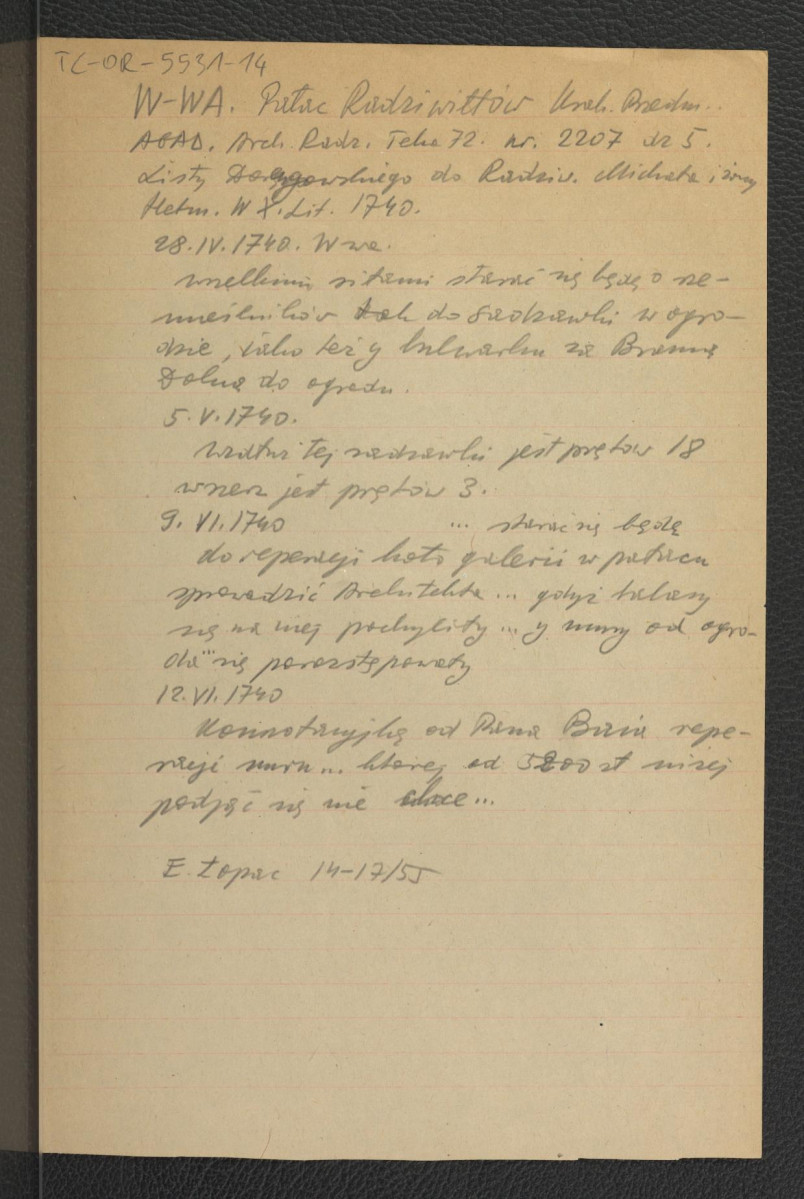 TC-OR-5931-14
W-WA. Pałac Radziwiłłów Krak. Przedm..
AGAD. Arch. Radz. Teka 72. nr. 2207 dz 5.
Listy do Radziw. Michała i żony
Hetm. W X. Lit. 1740.
28.IV.1740. Wwa.
wszelkimi siłami starać się będę o rze-
mieślników tak do sadzawki w ogro-
dzie, jako też y bulwarku za Bramą
Dolną do ogrodu.
5.V.1740.
wzdłuż tej sadzawki jest prętów 18
wszerz jest prętów 3.
9. VI. 1740 ... starać się będę
do reperacji koło galerii w pałacu
sprowadzić Architekta ... gdyż balasy
się na niej pochyliły ... y mury od ogro-
du ... się porozstępowały
12. VI. 1740
Konnotacyjką od Pana repe-
racji muru ... której od zł niżej
podjąć się nie chce ...
E. Łopac 14-17/55